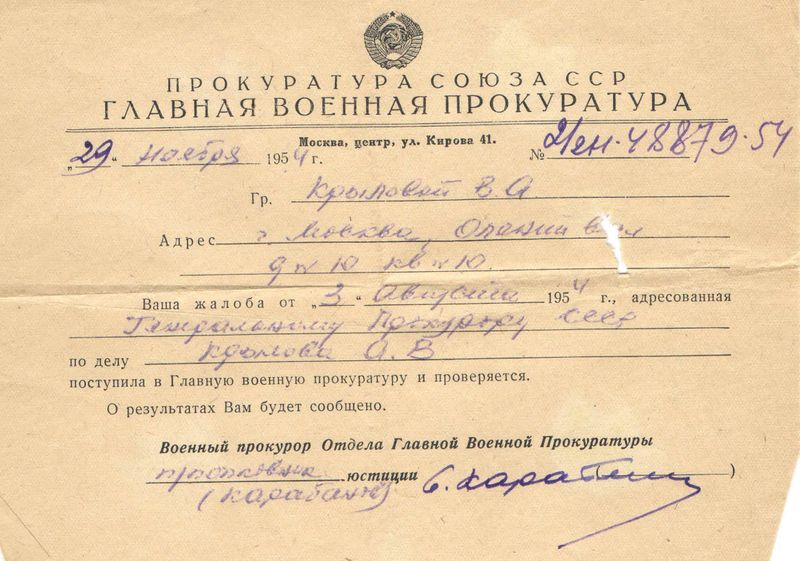 ПРОКУРАТУРА СОЮЗА ССР
ГЛАВНАЯ ВОЕННАЯ ПРОКУРАТУРА
Москва, центр, ул. Кирова 41.
„29“ ноября 1954 г. № 2/2н-48879-54
Гр. Крыловой В. А
Адрес г. Москва, Олений вал
д № 10 кв № 10.
Ваша жалоба от „3“ Августа 1954 г., адресованная
Генеральному Прокурору СССР
по делу Крылова А. В
поступила в Главную военную прокуратуру и проверяется.
О результатах Вам будет сообщено.
Военный прокурор Отдела Главной Военной Прокуратуры
юстиции